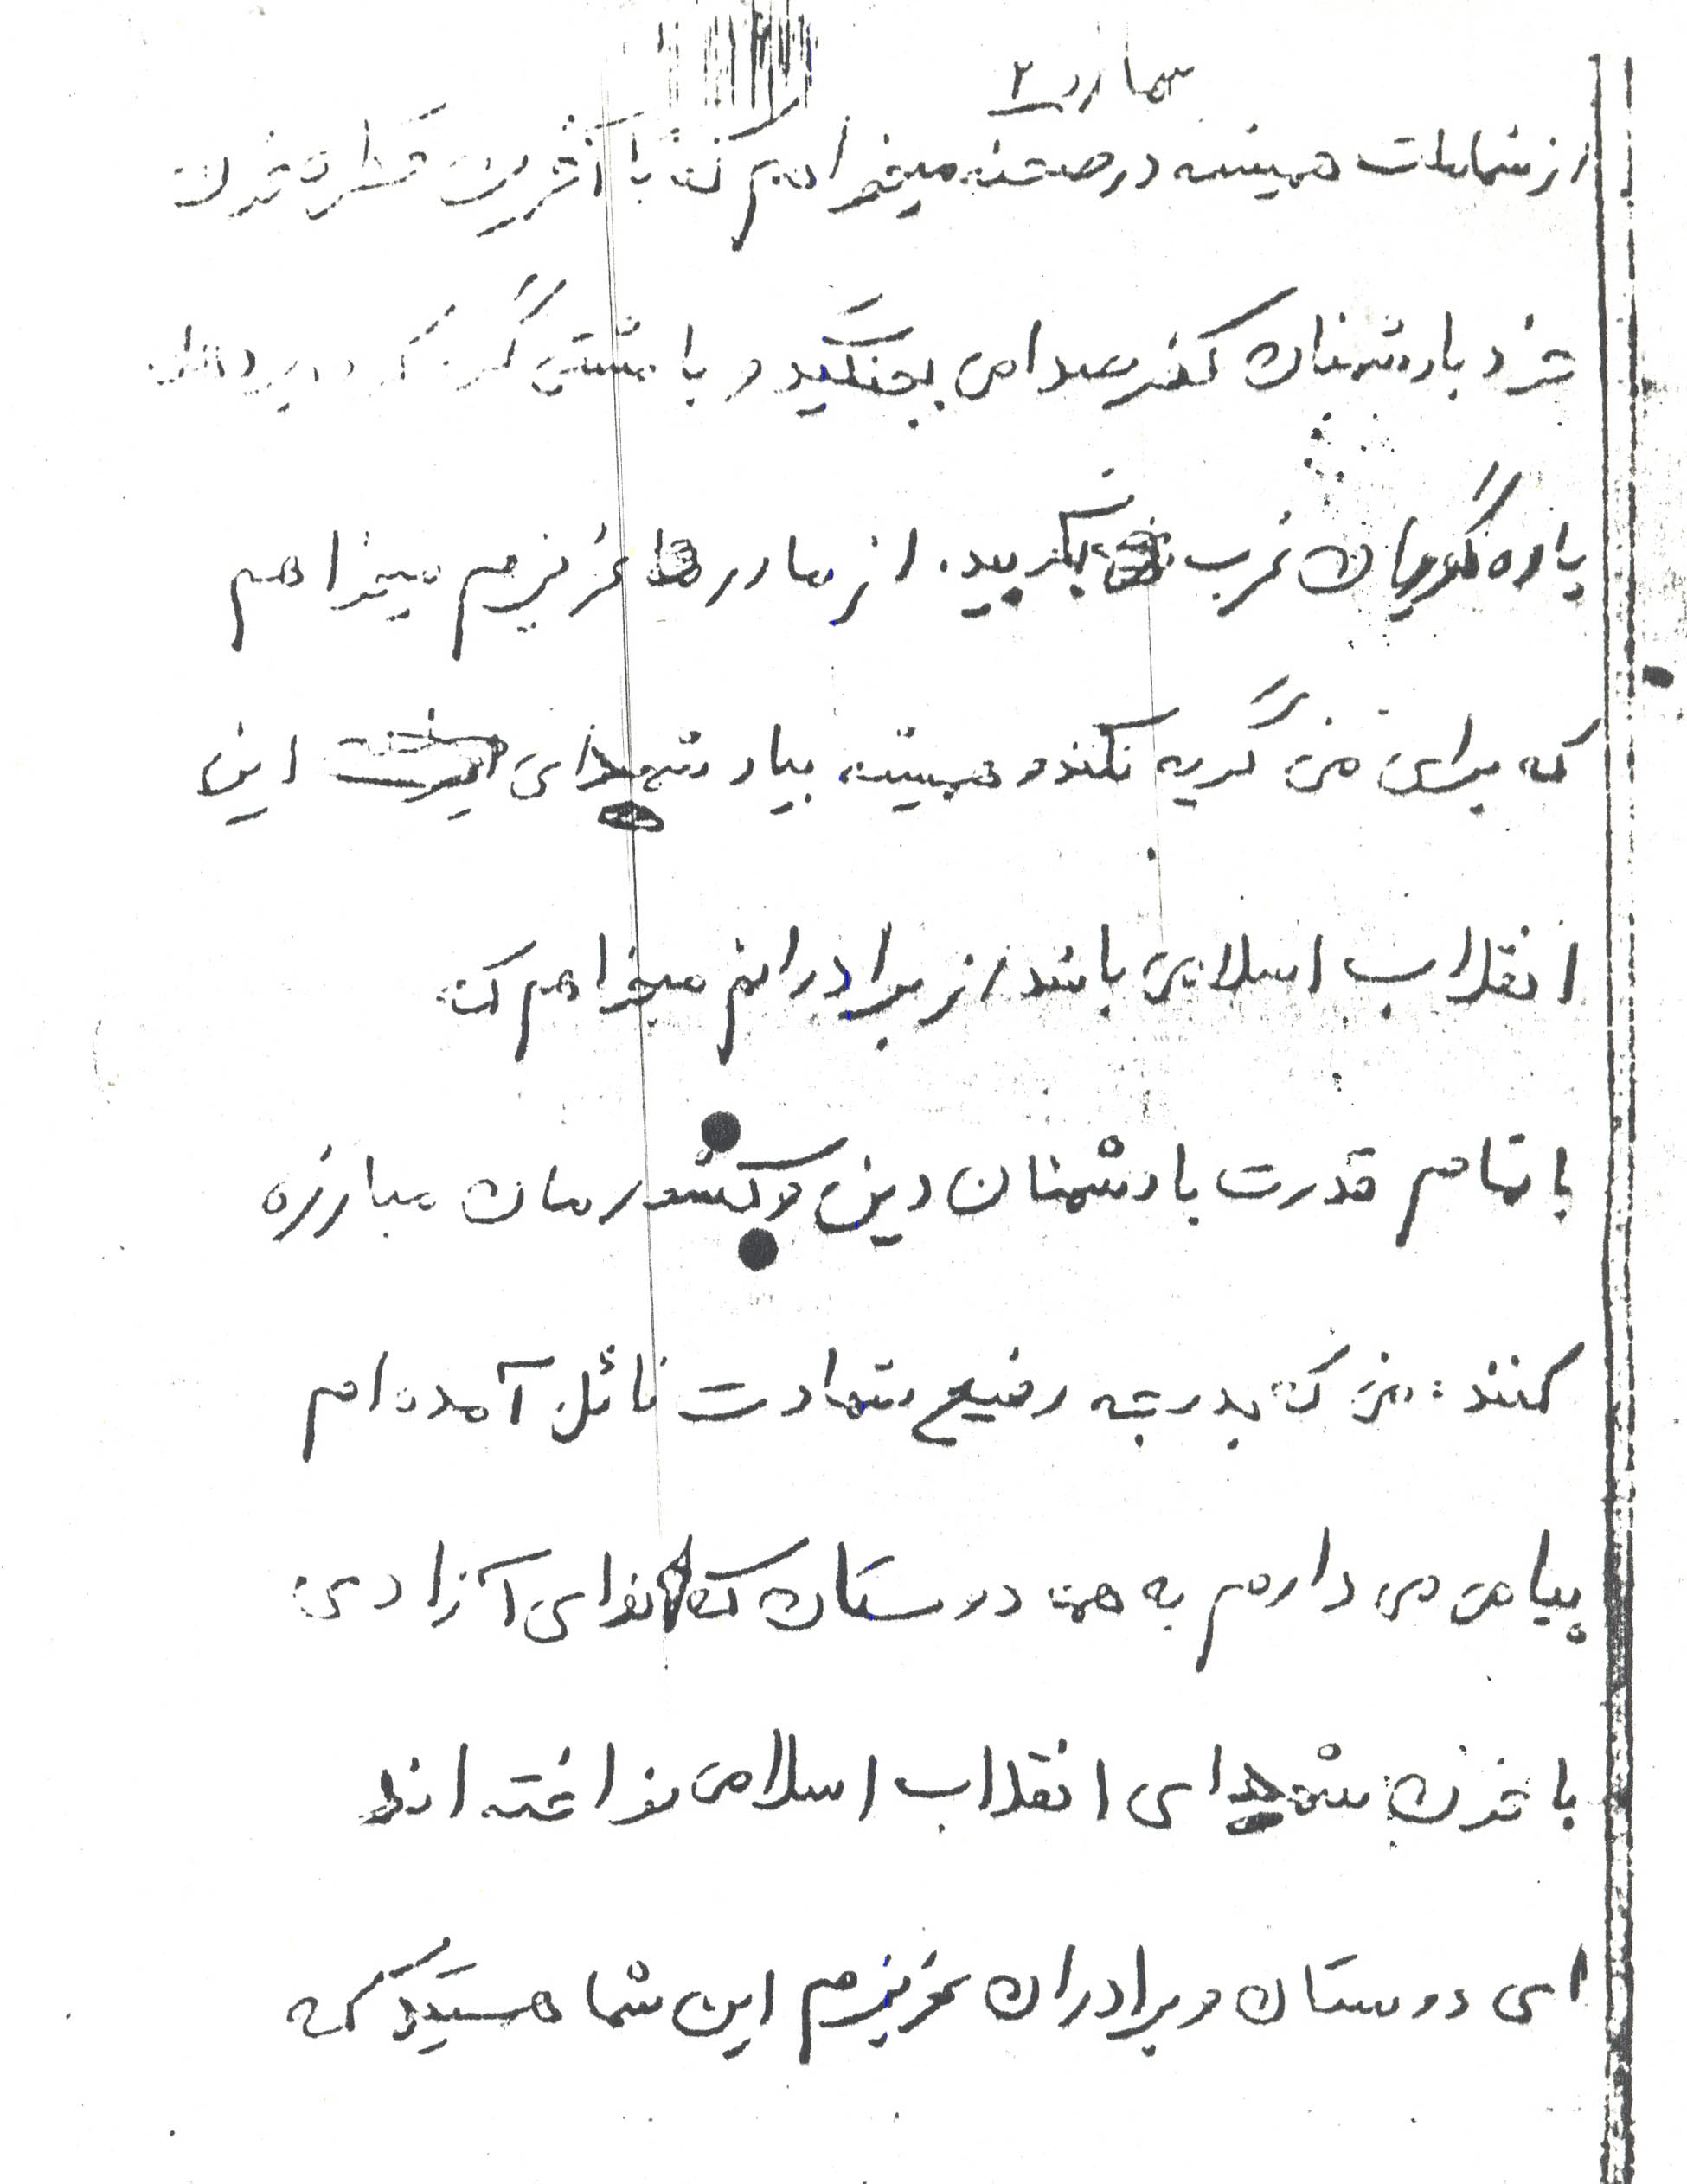 شماره ۲
از شما ملت همیشه در صحنه میخواهم که تا آخرین قطره خون
خود با دشمنان کفر صدامی بجنگید و با مشتی گره کرده بر دهان
یاوه گویان غرب بکوبید. از مادرها عزیزم میخواهم
که برای من گریه نکند و همیشه بیاد شهدای این
انقلاب اسلامی باشد از برادرانم میخواهم که
با تمام قدرت با دشمنان دین و کشورمان مبارزه
کنند: من که بدرجه رفیع شهادت نائل آمده ام
پیامی دارم به همه دوستان که نوای آزادی
با خون شهدای انقلاب اسلامی نواخته اند
ای دوستان و برادران عزیزم این شما هستید که